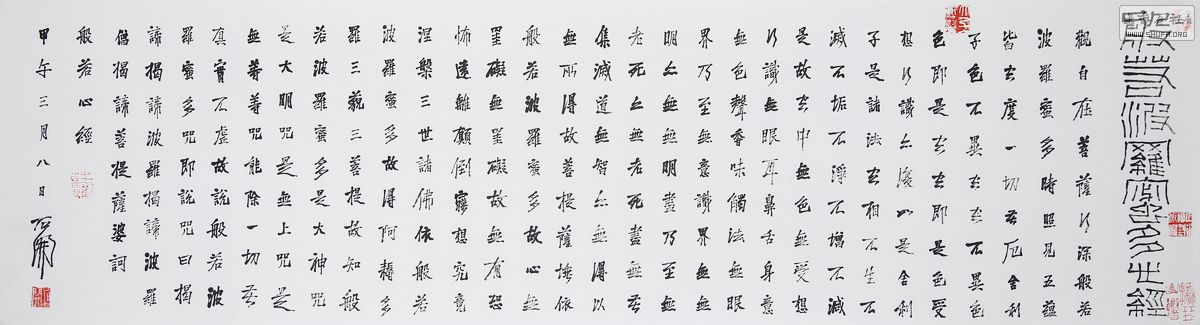 般若波羅蜜多心經
觀自在菩薩行深般若
波羅蜜多時照見五蘊
皆空度一切苦厄舍利
子色不異空空不異色
色即是空空即是色受
想行識亦復如是舍利
子是諸法空相不生不
滅不垢不淨不增不減
是故空中無色無受想
行識無眼耳鼻舌身意
無色聲香味觸法無眼
界乃至無意識界無無
明亦無無明盡乃至無
老死亦無老死盡無苦
集滅道無智亦無得以
無所得故菩提薩埵依
般若波羅蜜多故心無
罣礙無罣礙故無有恐
怖遠離顛倒夢想究竟
涅槃三世諸佛依般若
波羅蜜多故得阿耨多
羅三藐三菩提故知般
若波羅蜜多是大神咒
是大明咒是無上咒是
無等等咒能除一切苦
真實不虛故說般若波
羅蜜多咒即說咒曰揭
諦揭諦波羅揭諦波羅
僧揭諦菩提薩婆訶
般若心經
甲午三月八日
www.SHUFA.ORG